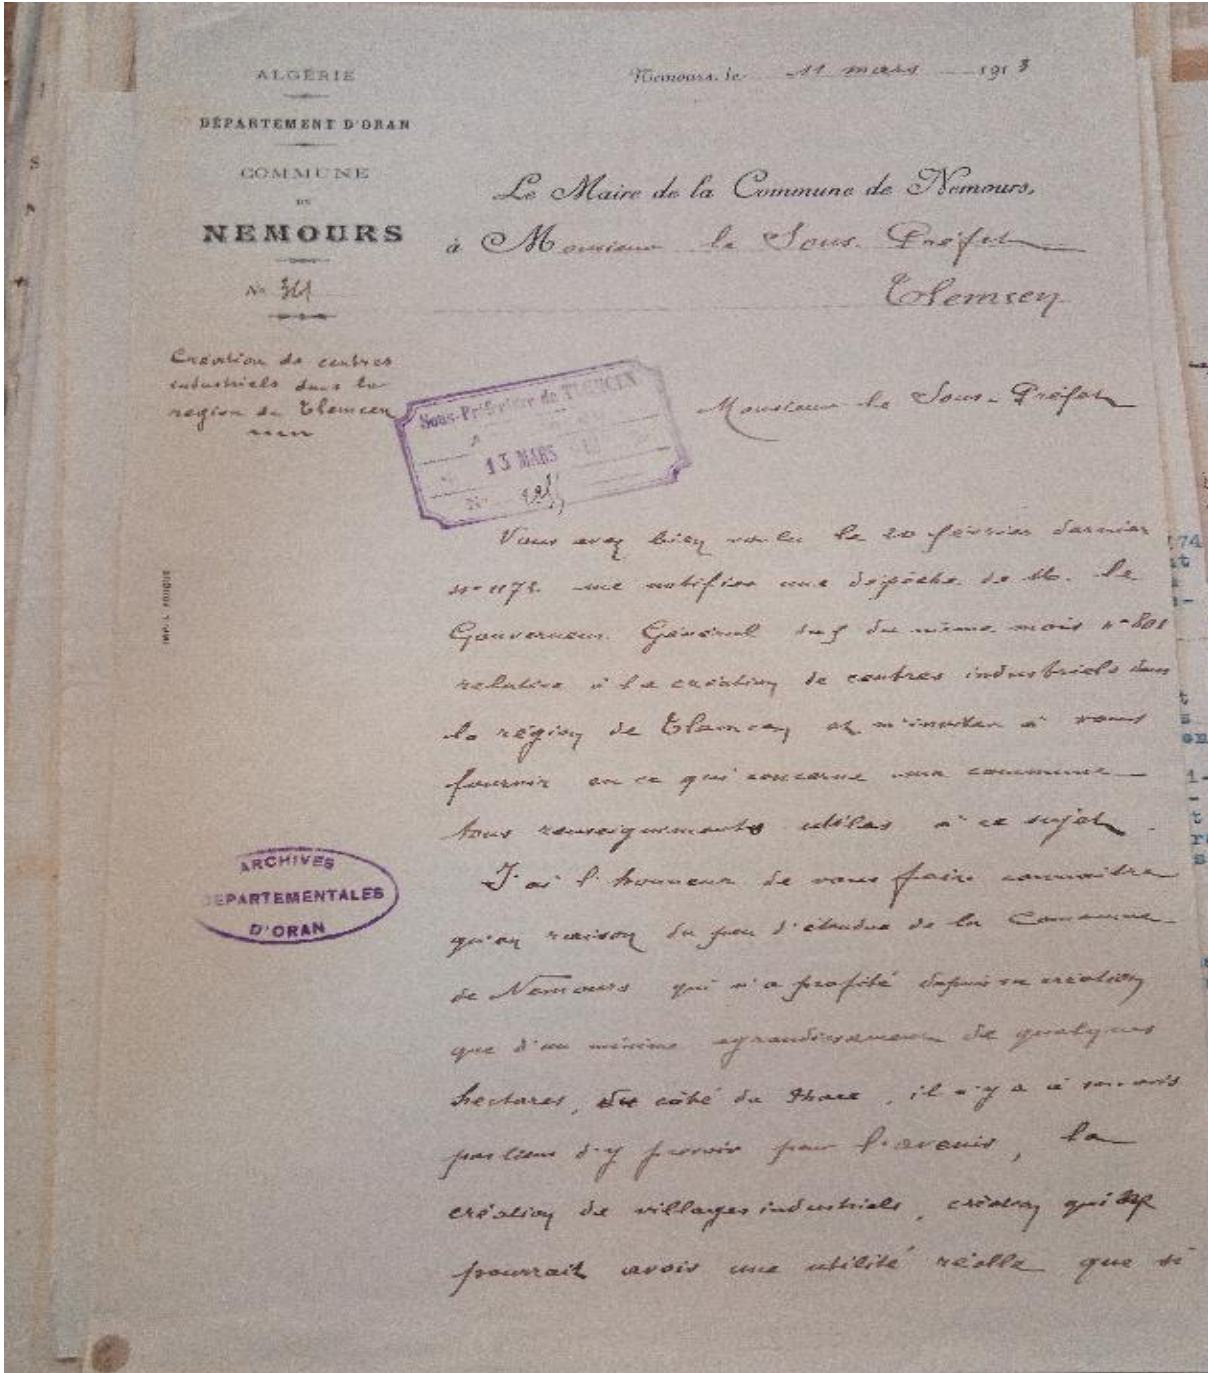 ALGÉRIE
DÉPARTEMENT D'ORAN
COMMUNE
DE
NEMOURS
No 361
Création de centres
industriels dans la
région de Tlemcen
Nemours, le 11 mars 1913
Le Maire de la Commune de Nemours,
à Monsieur le Sous-Préfet
Tlemcen
Sous-Préfecture de TLEMCEN
13 MARS
No
Monsieur le Sous-Préfet
Vous avez bien voulu le 20 février dernier
n° 1172 me notifier une dépêche de M. le
Gouverneur Général du du même mois n° 801
relative à la création de centres industriels dans
la région de Tlemcen et m'inviter à vous
fournir en ce qui concerne ma commune
tous renseignements utiles à ce sujet.
J'ai l'honneur de vous faire connaître
qu'en raison du peu d'étendue de la Commune
de Nemours qui n'a profité depuis sa création
que d'un minime agrandissement de quelques
hectares, du côté du Phare, il n'y a à mon avis
pas lieu d'y prévoir pour l'avenir, la
création de villages industriels, création qui ne
pourrait avoir une utilité réelle que si
IMP. L. FOUQUE
ARCHIVES
DÉPARTEMENTALES
D'ORAN